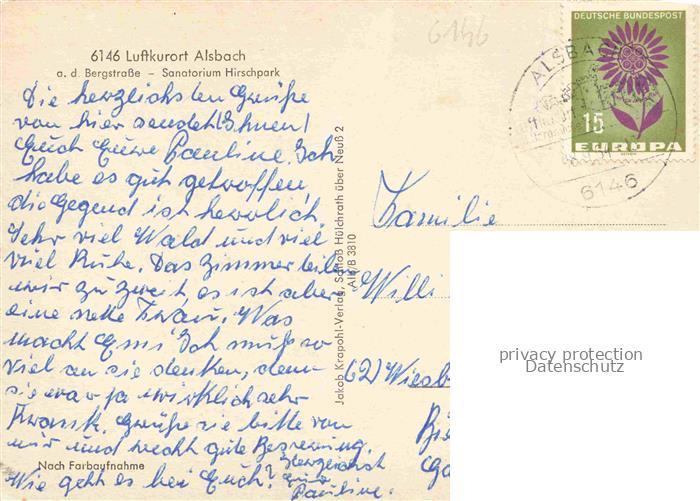 6146
6146 Luftkurort Alsbach
a. d. Bergstraße – Sanatorium Hirschpark
Die herzlichsten Grüße
von hier sendet Ihnen /
Euch Euere Pauline. Ich
habe es gut getroffen,
die Gegend ist herrlich,
sehr viel Wald und viel
viel Ruhe. Das Zimmer teile
wir zu zweit, es ist aber
eine nette Frau. Was
macht Emi? Ich muß so
viel an sie denken, denn
sie war ja wirklich sehr
krank. Grüße sie bitte von
mir und recht gute Besserung.
Wie geht es bei Euch? Herzlichst
Pauline.
Nach Farbaufnahme
Jakob Krapohl-Verlag, Schloß Hülchrath über Neuß 2
Als/B 3810
DEUTSCHE BUNDESPOST
15
EUROPA
ALSBACH
6146
Familie
Willi
62) Wiesb
privacy protection
Datenschutz